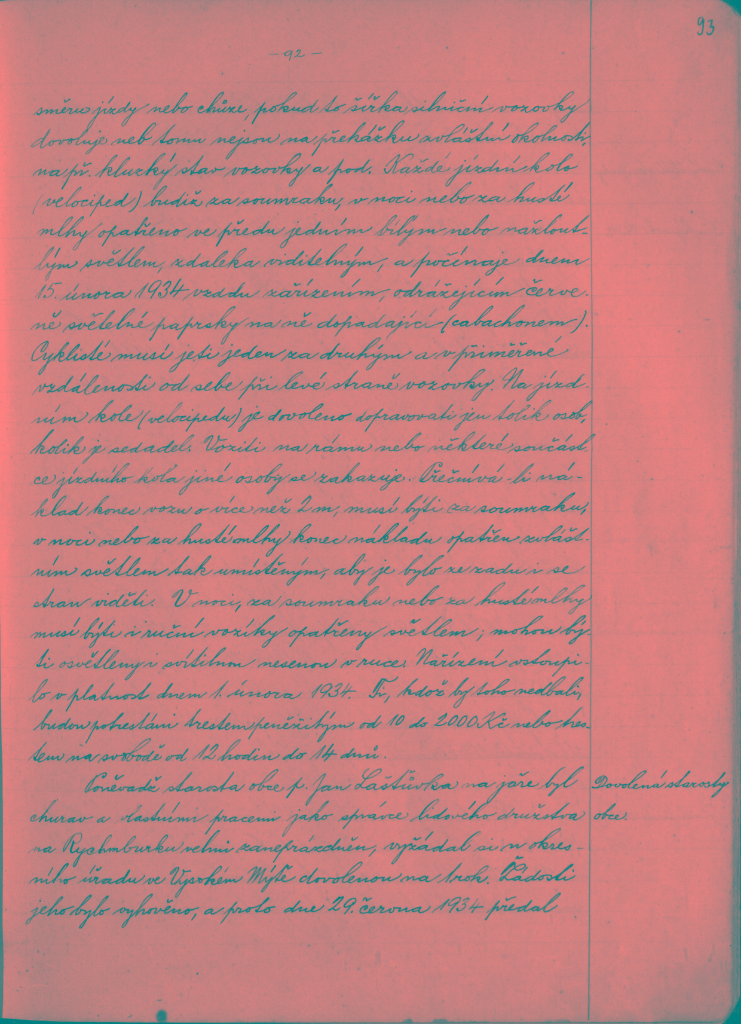 93
- 92 -
směru jízdy nebo chůze, pokud to šířka silniční vozovky
dovoluje neb tomu nejsou na překážku zvláštní okolnosti,
na př. kluzký stav vozovky a pod. Každé jízdní kolo
(velociped) budiž za soumraku, v noci nebo za husté
mlhy opatřeno ve předu jedním bílym nebo nažlout-
lým světlem, zdaleka viditelným, a počínaje dnem
15. února 1934 vzadu zařízením, odrážejícím červe-
ně světelné paprsky na ně dopadající (cabachonem).
Cyklisté musí jeti jeden za druhým a v přiměřené
vzdálenosti od sebe při levé straně vozovky. Na jízd-
ním kole (velocipedu) je dovoleno dopravovati jen tolik osob,
kolik je sedadel. Voziti na rámu nebo některé součást-
ce jízdního kola jiné osoby se zakazuje. Přečnívá-li ná-
klad konec vozu o více než 2 m, musí býti za soumraku,
v noci nebo za husté mlhy konec nákladu opatřen zvlášt-
ním světlem tak umístěným, aby je bylo ze zadu i se
stran viděti. V noci, za soumraku nebo za husté mlhy
musí býti i ruční vozíky opatřeny světlem; mohou bý-
ti osvětleny i svítilnou nesenou v ruce. Nařízení vstoupi-
lo v platnost dnem 1. února 1934. Ti, kdož by toho nedbali,
budou potrestáni trestem peněžitým od 10 do 2000 Kč nebo tres-
tem na svobodě od 12 hodin do 14 dnů.
Poněvadž starosta obce p. Jan Laštůvka na jaře byl
churav a vlastními pracemi jako správce lidového družstva
na Rychmburku velmi zaneprázdněn, vyžádal si u okres-
ního úřadu ve Vysokém Mýtě dovolenou na 1 rok. Žádosti
jeho bylo vyhověno, a proto dne 29. června 1934 předal
Dovolená starosty
obce.